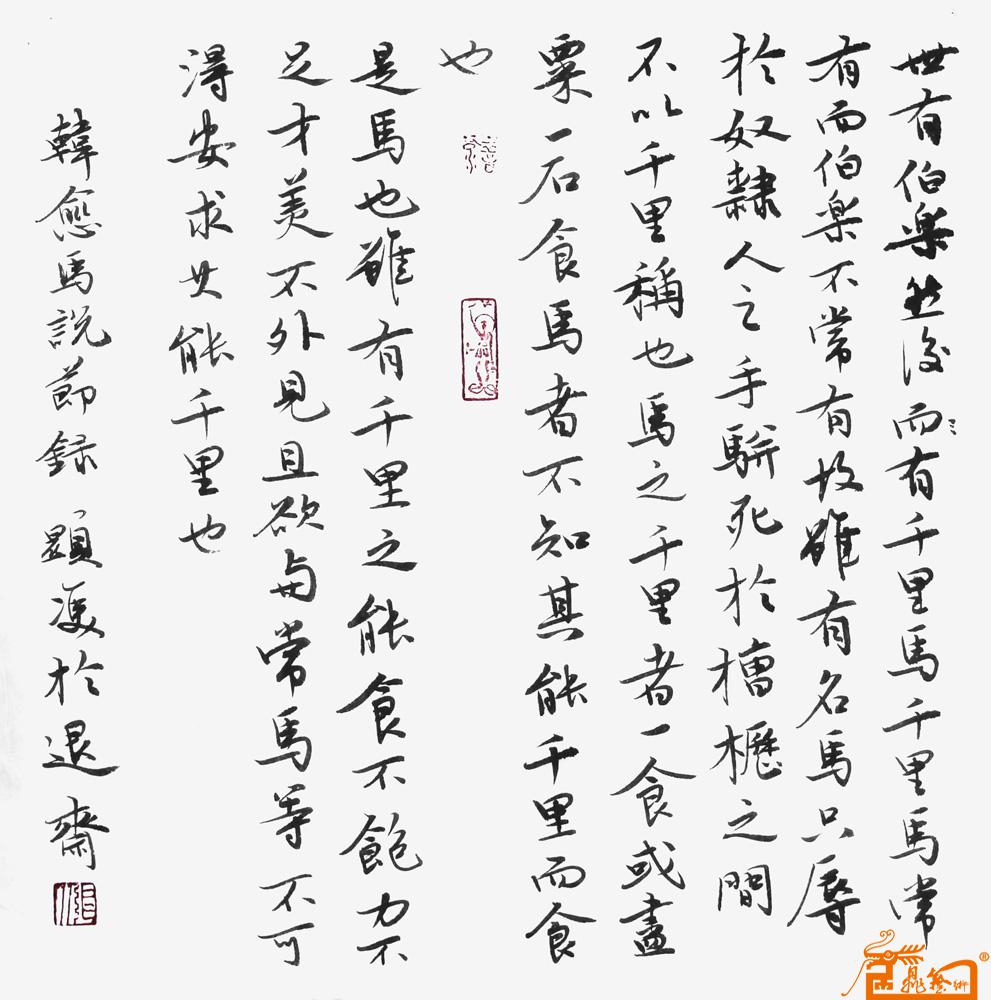 世有伯楽然後而有千里馬千里馬常
有而伯楽不常有故雖有名馬只辱
於奴隸人之手駢死於槽櫪之間
不以千里稱也馬之千里者一食或盡
粟一石食馬者不知其能千里而食
也
是馬也雖有千里之能食不飽力不
足才美不外見且欲与常馬等不可
得安求其能千里也
韓愈馬說節録 顕於退齋